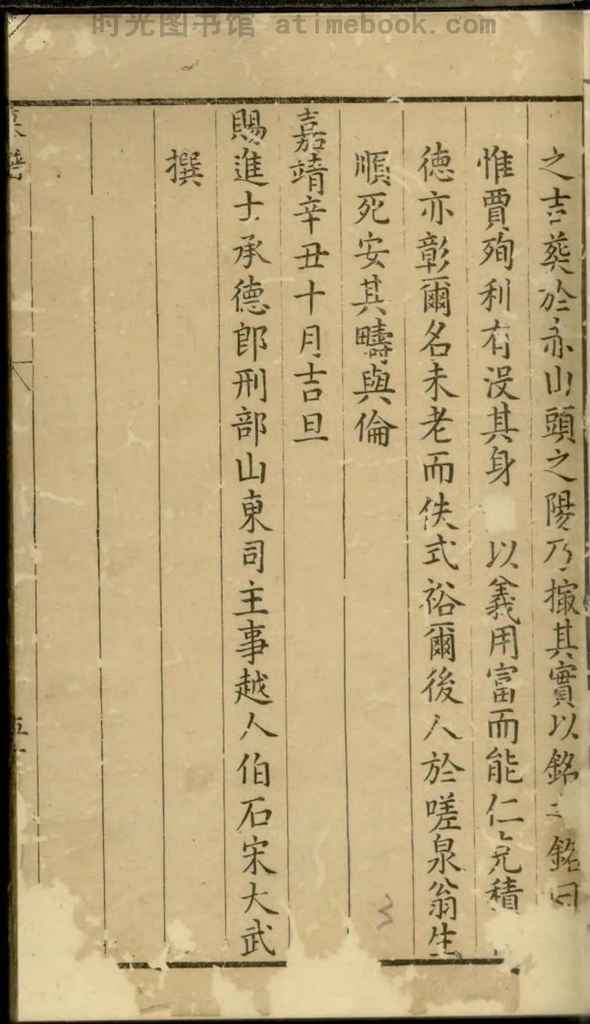 时光图书馆 atimebook.com
之吉葬於亦山頭之陽乃撮其實以銘之銘曰
惟賈殉利有没其身 以義用富而能仁克積
德亦彰爾名未老而佚式裕爾後人於嗟泉翁生
順死安其疇與倫
嘉靖辛丑十月吉旦
賜進士承德郎刑部山東司主事越人伯石宋大武
撰